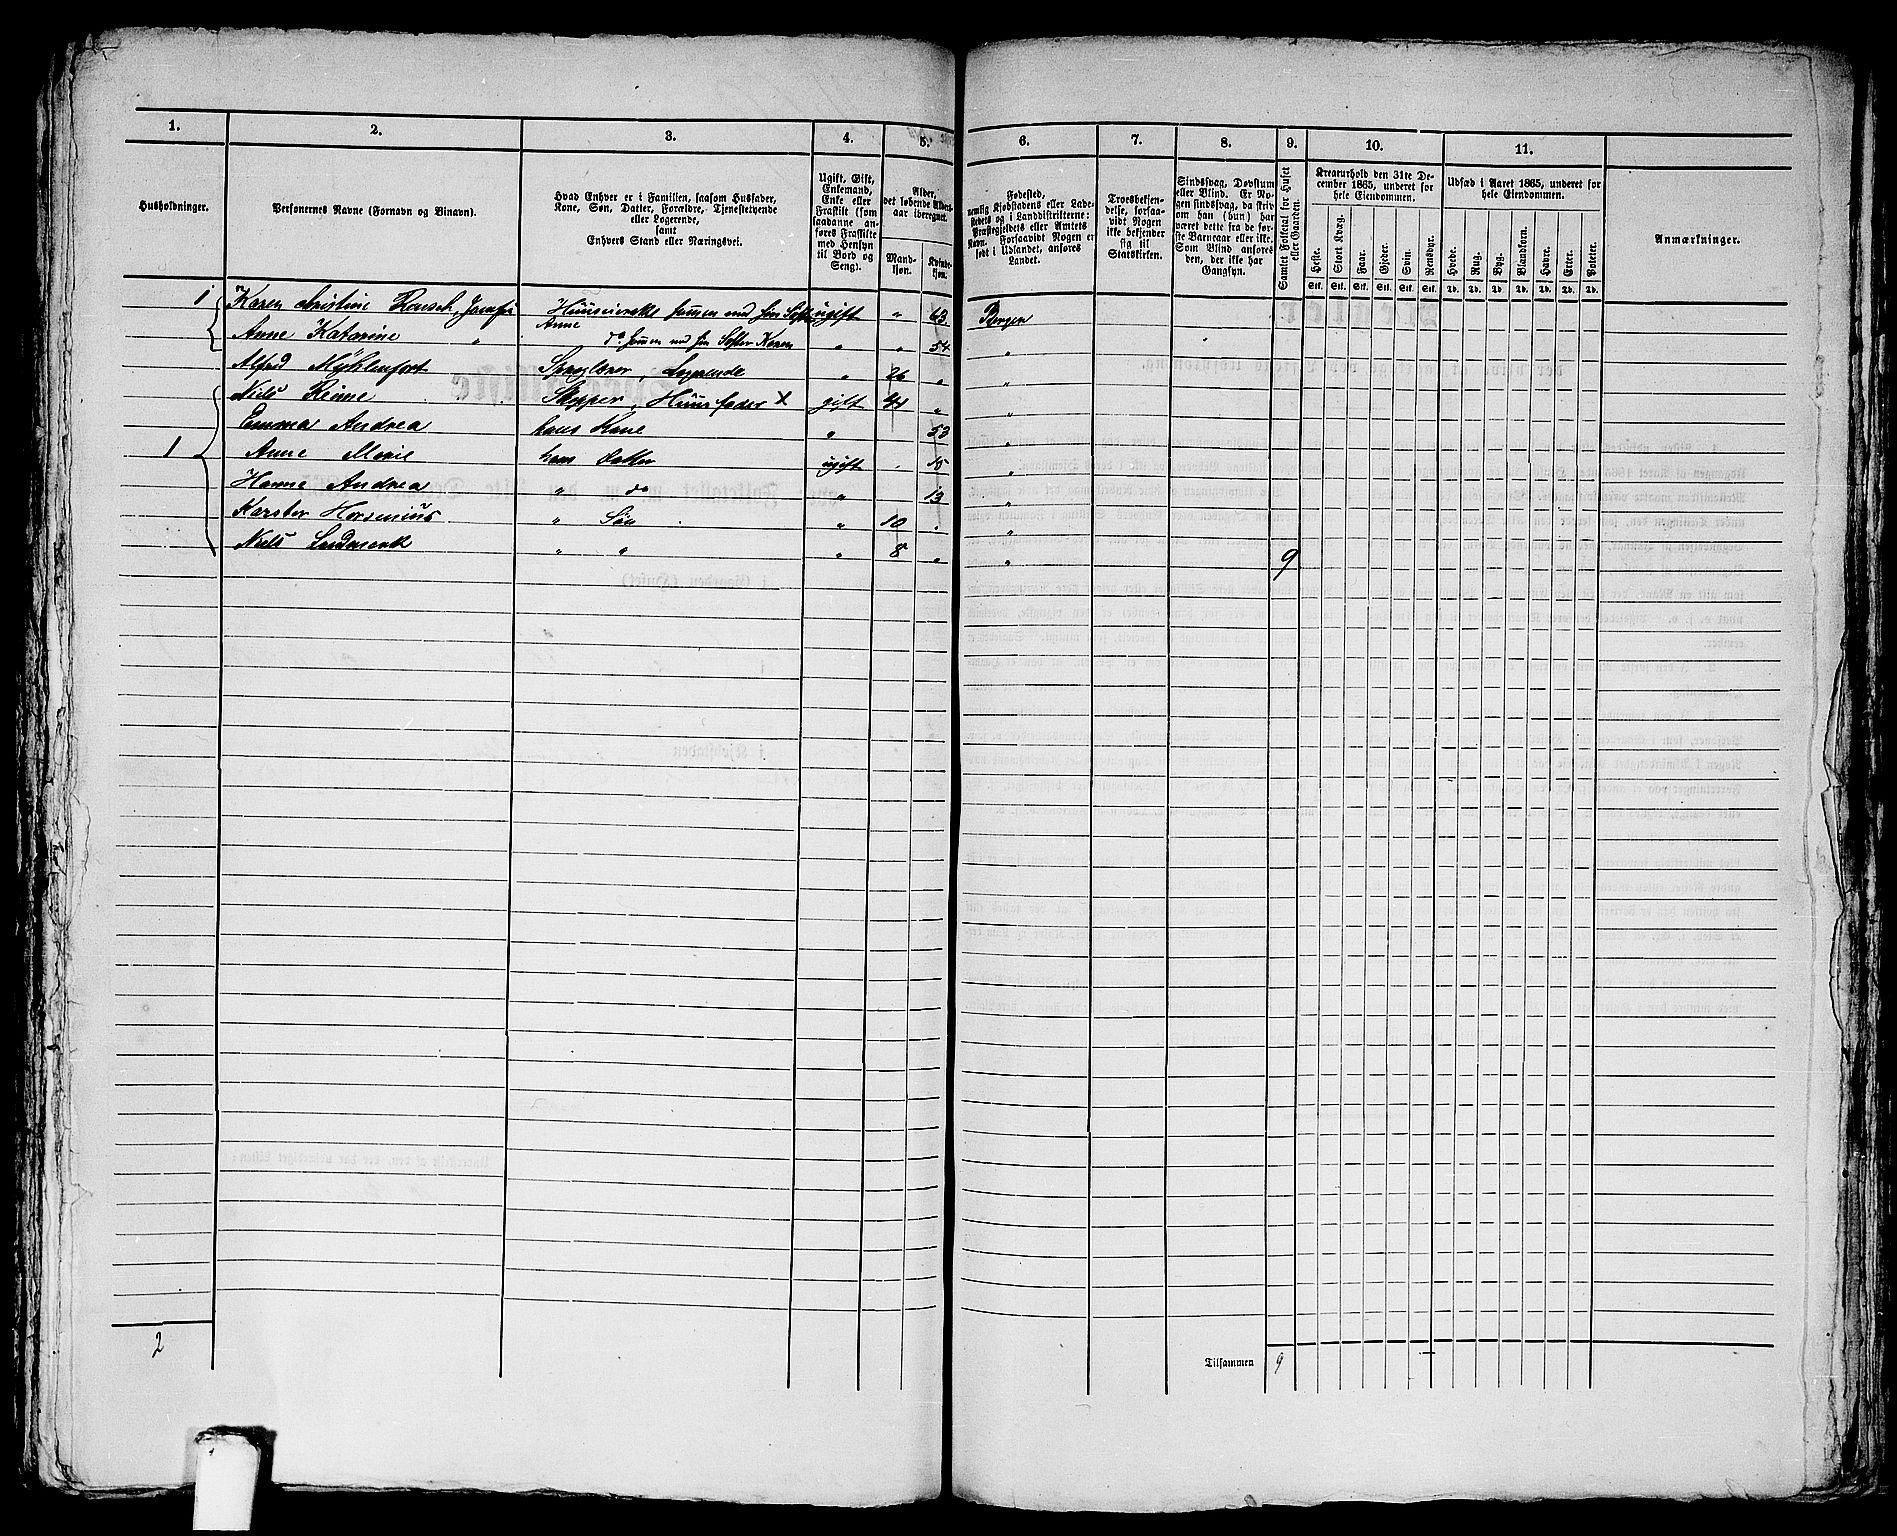 1. 2. 3. 4. 5. 6. 7. 8. 9. 10. 11.
Husholdninger.
Personernes Navne (Fornavn og Binavn).
Hvad Enhver er i Familien, saasom Husfader,
Kone, Søn, Datter, Forældre, Tjenestetyende
eller Logerende,
samt
Enhvers Stand eller Næringsvei.
Ugift, Gift,
Enkemand,
Enke eller
Fraskilt (som
saadanne an-
føres Fraskilte
med Hensyn
til Bord og
Seng).
Alder,
det løbende Alders-
aar iberegnet.
Mand-
kjøn.
Kvinde-
kjøn.
Fødested,
nemlig Kjøbstadens eller Lade-
stedets og i Landdistrikterne:
Præstegjeldets eller Amtets
Navn. Forsaavidt Nogen er
født i Udlandet, anføres
Landet.
Troesbekjen-
delse, forsaa-
vidt Nogen
ikke bekjender
sig til
Statskirken.
Sindssvag, Døvstum
eller Blind. Er No-
gen sindssvag, da skriv
om han (hun) har
været dette fra de før-
ste Barneaar eller ikke.
Som Blind ansføres
den, der ikke har
Gangsyn.
Samlet Folketal for Huset
eller Gaarden.
Kreaturhold den 31te De-
cember 1865, underet for
hele Eiendommen.
Heste. Stort Kvæg. Faar. Gjeder. Svin. Rensdyr.
Stk. Stk. Stk. Stk. Stk. Stk.
Udsæd i Aaret 1865, underet for
hele Eiendommen.
Hvede. Rug. Byg. Blandkorn. Havre. Erter. Poteter.
Td. Td. Td. Td. Td. Td. Td.
Anmærkninger.
1 Karen Christine ugift „ 63 Bergen
Anne
Anne Katarine „ do „ „ 54 „
Alfred Logerende „ 26 „ „
Niels Skipper, Huusfader X gift „ „
Emma Andrea hans Kone „ 53 „
1 Anne Marie hans Datter ugift . 15 „
Hanne Andrea „ do „ 13 „
Karsten „ Søn „ 10 . „
Niels „ „ „ 8 „ „ 9
2
Tilsammen 9